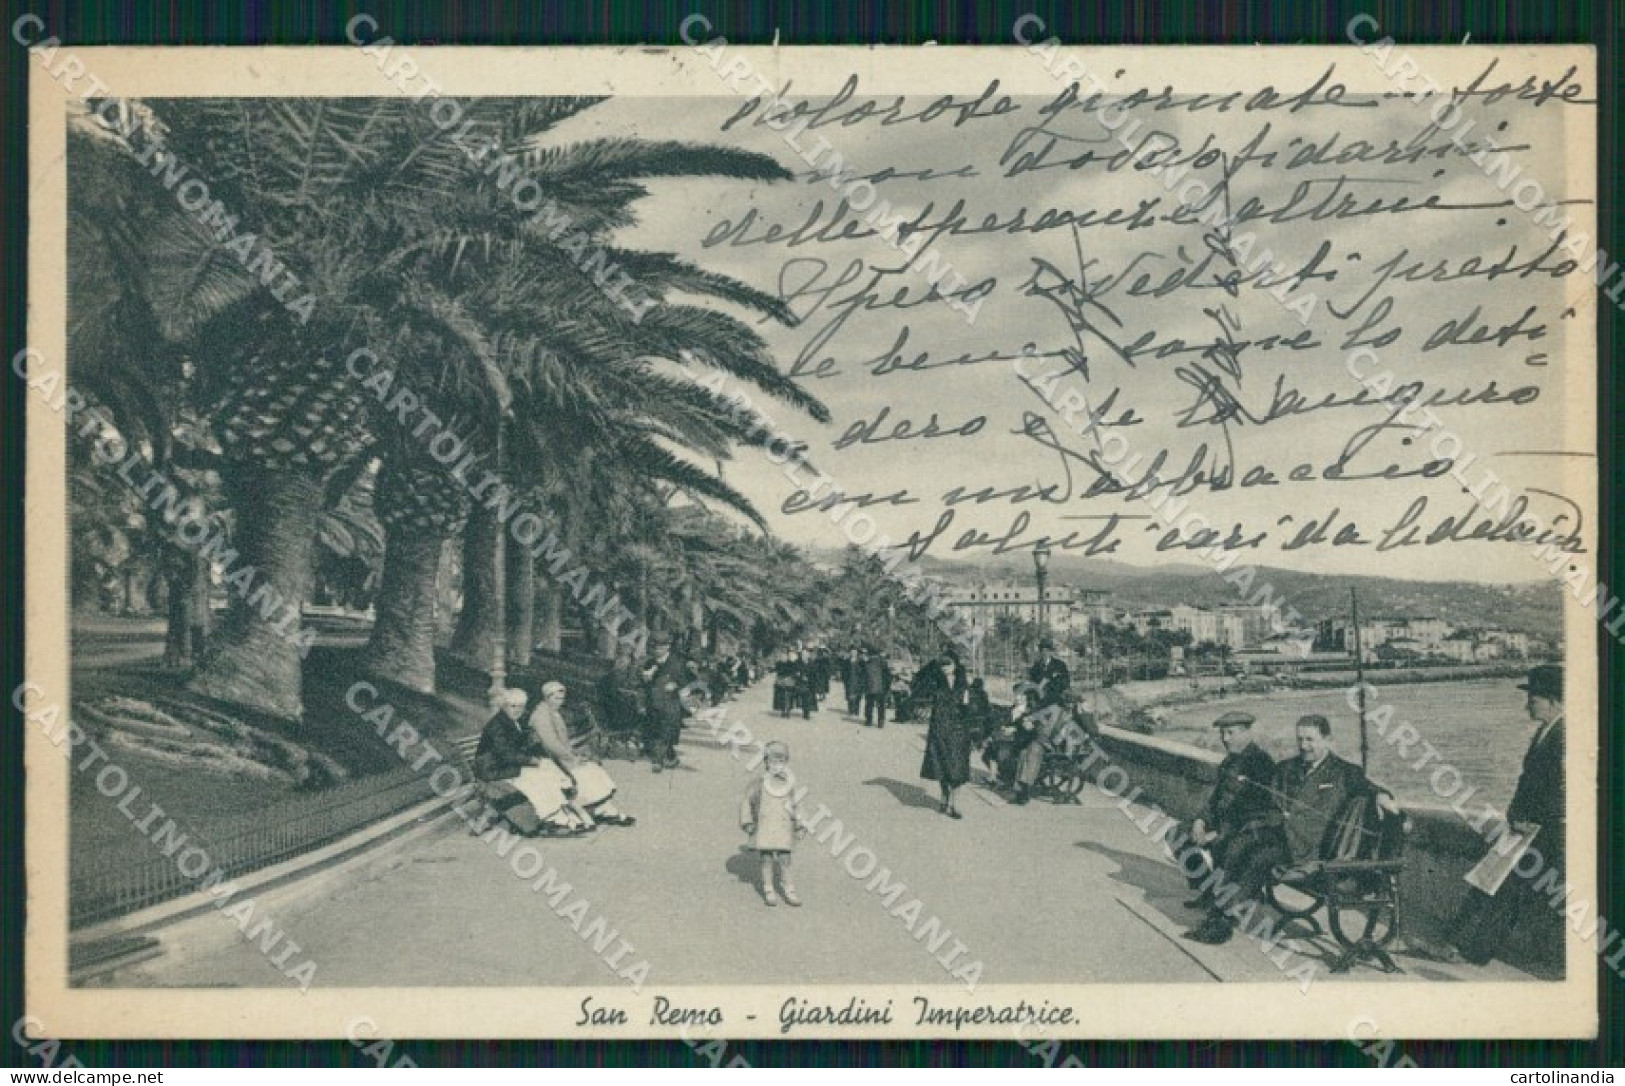 dolorose giornate --- forse
non dovevo fidarmi
delle speranze altrui.
Spero rivederti presto
e bene, come lo desi=
dero e te lo auguro
con un abbraccio.
Saluti cari da
San Remo - Giardini Imperatrice.
CARTOLINOMANIA
delcampe.net
cartolinandia